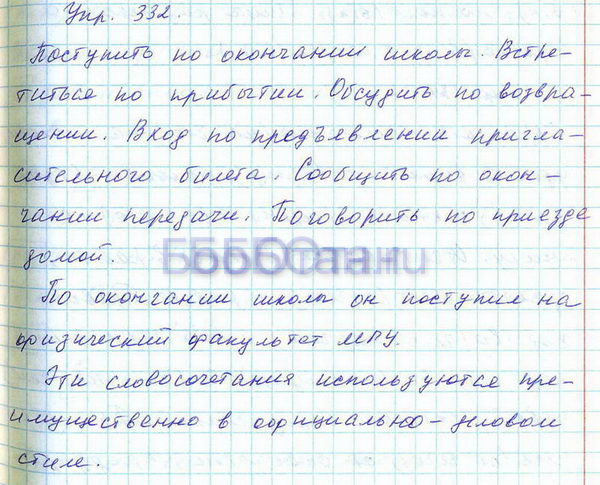 Упр. 332.
Поступить по окончании школы. Встре-
титься по прибытии. Обсудить по возвра-
щении. Вход по предъявлении пригла-
сительного билета. Сообщить по окон-
чании передачи. Поговорить по приезде
домой.
По окончании школы он поступил на
физический факультет МГУ.
Эти словосочетания используются пре-
имущественно в официально-деловом
стиле.